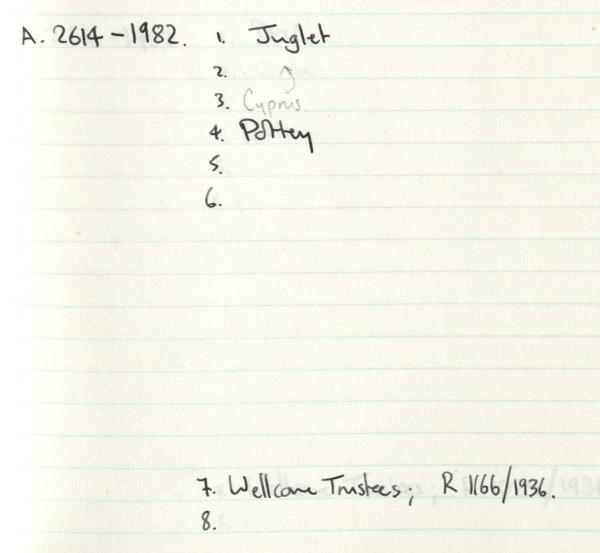 A. 2614-1982. 1. Juglet
2.
3. Cyprus
4. Pottery
5.
6.
7. Wellcome Trustees; R 1166/1936.
8.